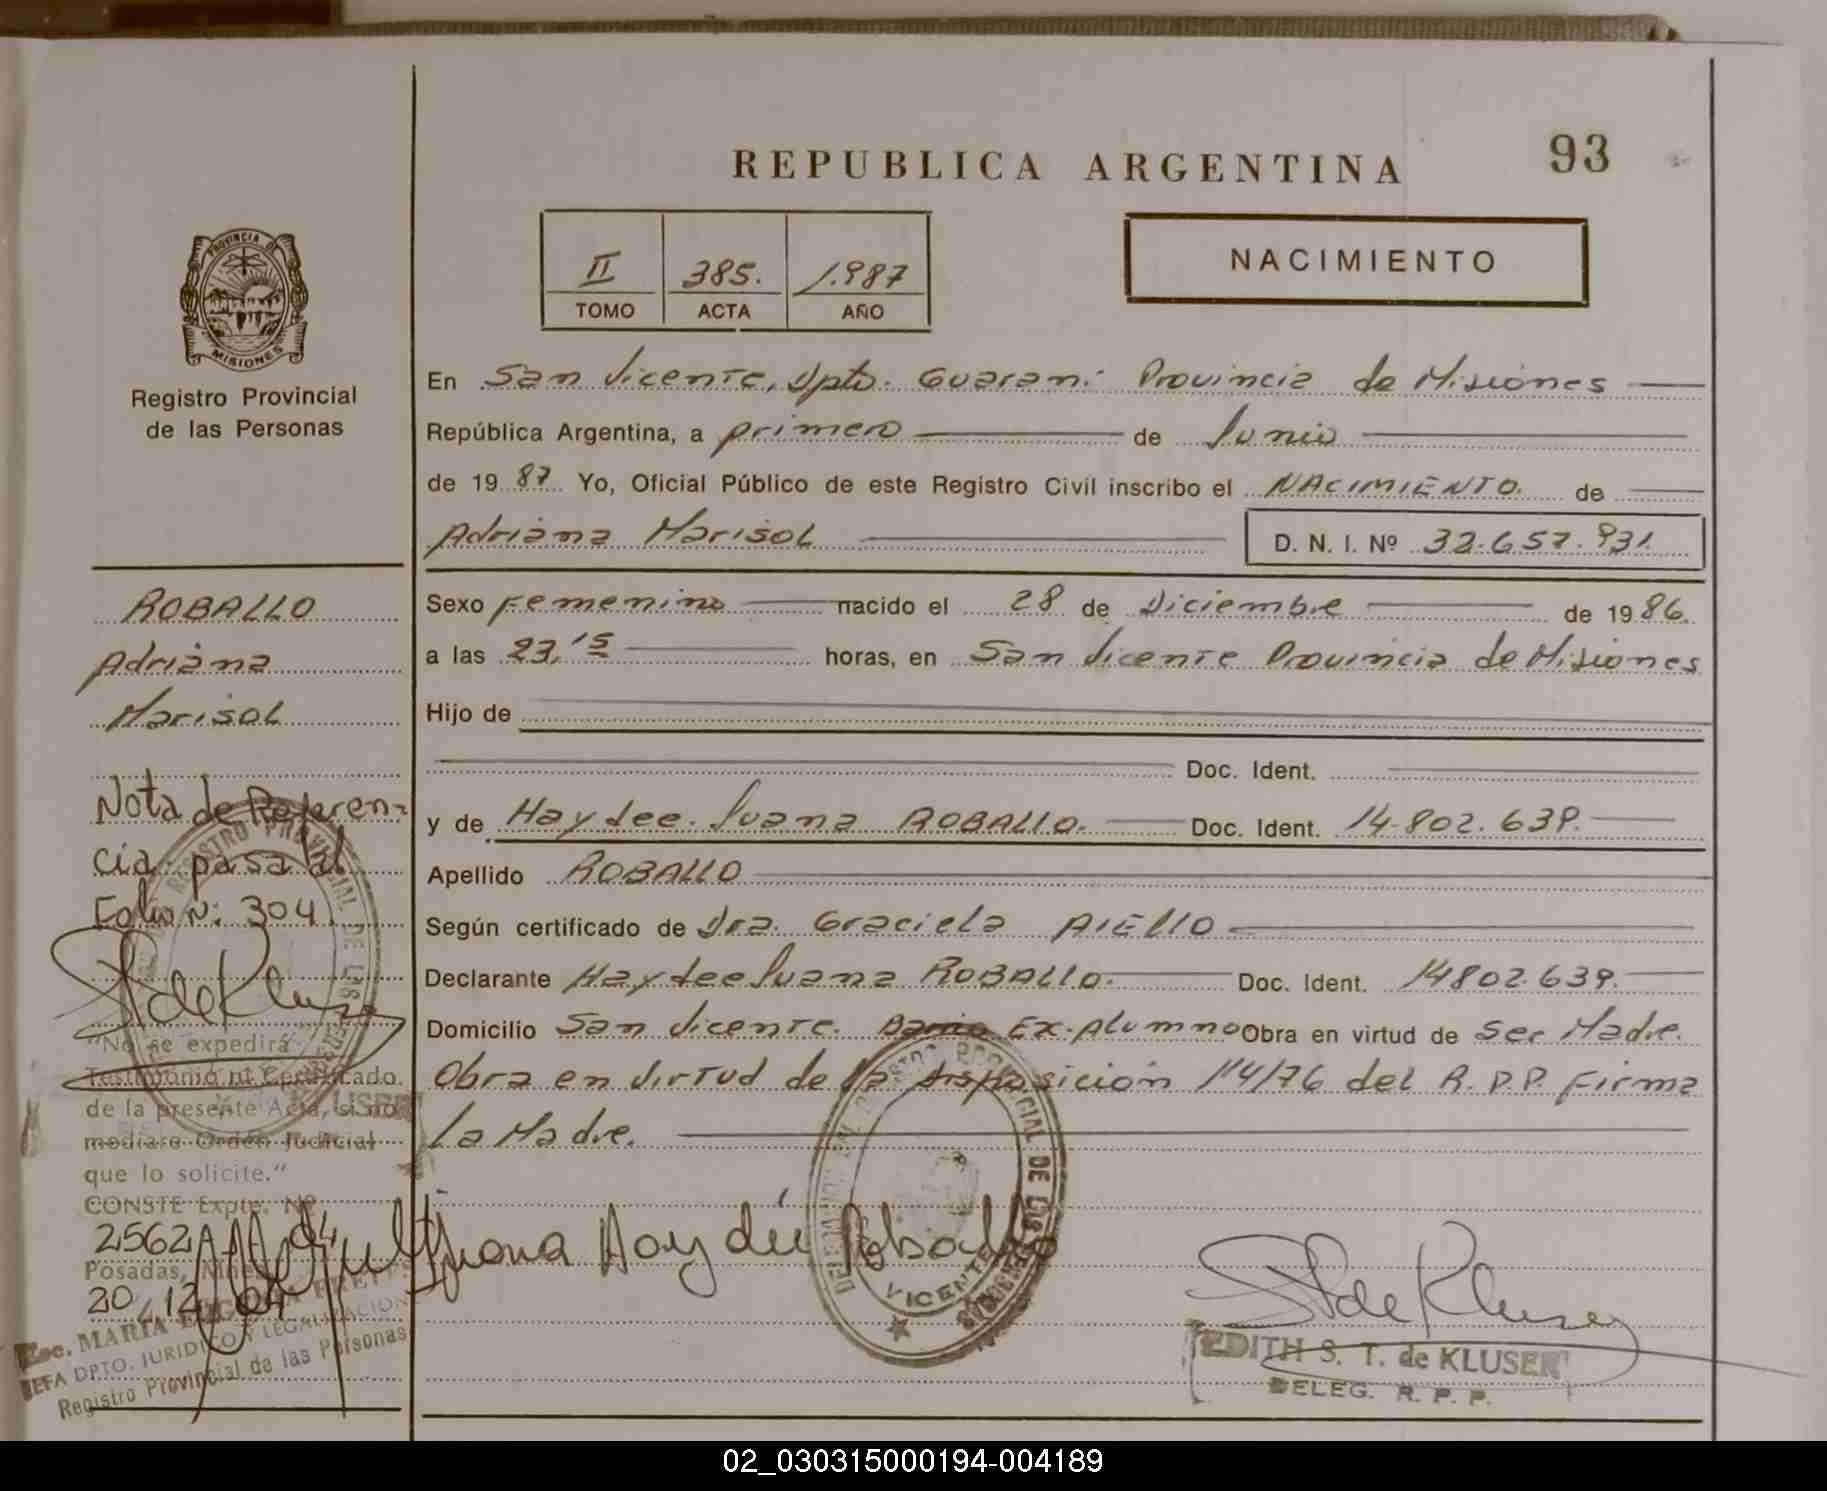 REPUBLICA ARGENTINA
93
II 385. 1.987
TOMO ACTA AÑO
NACIMIENTO
PROVINCIA DE
MISIONES
Registro Provincial
de las Personas
En San Vicente, Dpto. Guaraní Provincia de Misiones
República Argentina, a primero de Junio
de 1987 Yo, Oficial Público de este Registro Civil inscribo el NACIMIENTO. de
Adriana Marisol D. N. I. Nº 32.657.931.
Sexo Femenino nacido el 28 de Diciembre de 1986.
a las 23,15 horas, en San Vicente Provincia de Misiones
Hijo de
Doc. Ident.
y de Haydee Juana ROBALLO. Doc. Ident. 14.802.639.
Apellido ROBALLO
Según certificado de Dra. Graciela AIELLO
Declarante Haydee Juana ROBALLO. Doc. Ident. 14802.639.
Domicilio San Vicente. Barrio Ex-Alumno Obra en virtud de Ser Madre.
Obra en virtud de la disposición 114/76 del R.P.P. Firma
La Madre.
Juana Haydée Roballo
REGISTRO PROVINCIAL DE LAS PERSONAS
VICENTE
EDITH S. T. de KLUSER
DELEG. R. P. P.
ROBALLO
Adriana
Marisol
Nota de Referen-
cia pasa al
Folio N: 304
REGISTRO PROVINCIAL DE LAS
KLUSER
"No se expedirá
Testimonio ni Certificado
de la presente Acta, si no
mediare Orden Judicial
que lo solicite."
CONSTE Expte. Nº
2562 04
Posadas, Mnes
20 12 04
Esc. MARIA EUGENIA
JEFA DPTO. JURIDICO Y LEGALIZACION
Registro Provincial de las Personas
02_030315000194-004189